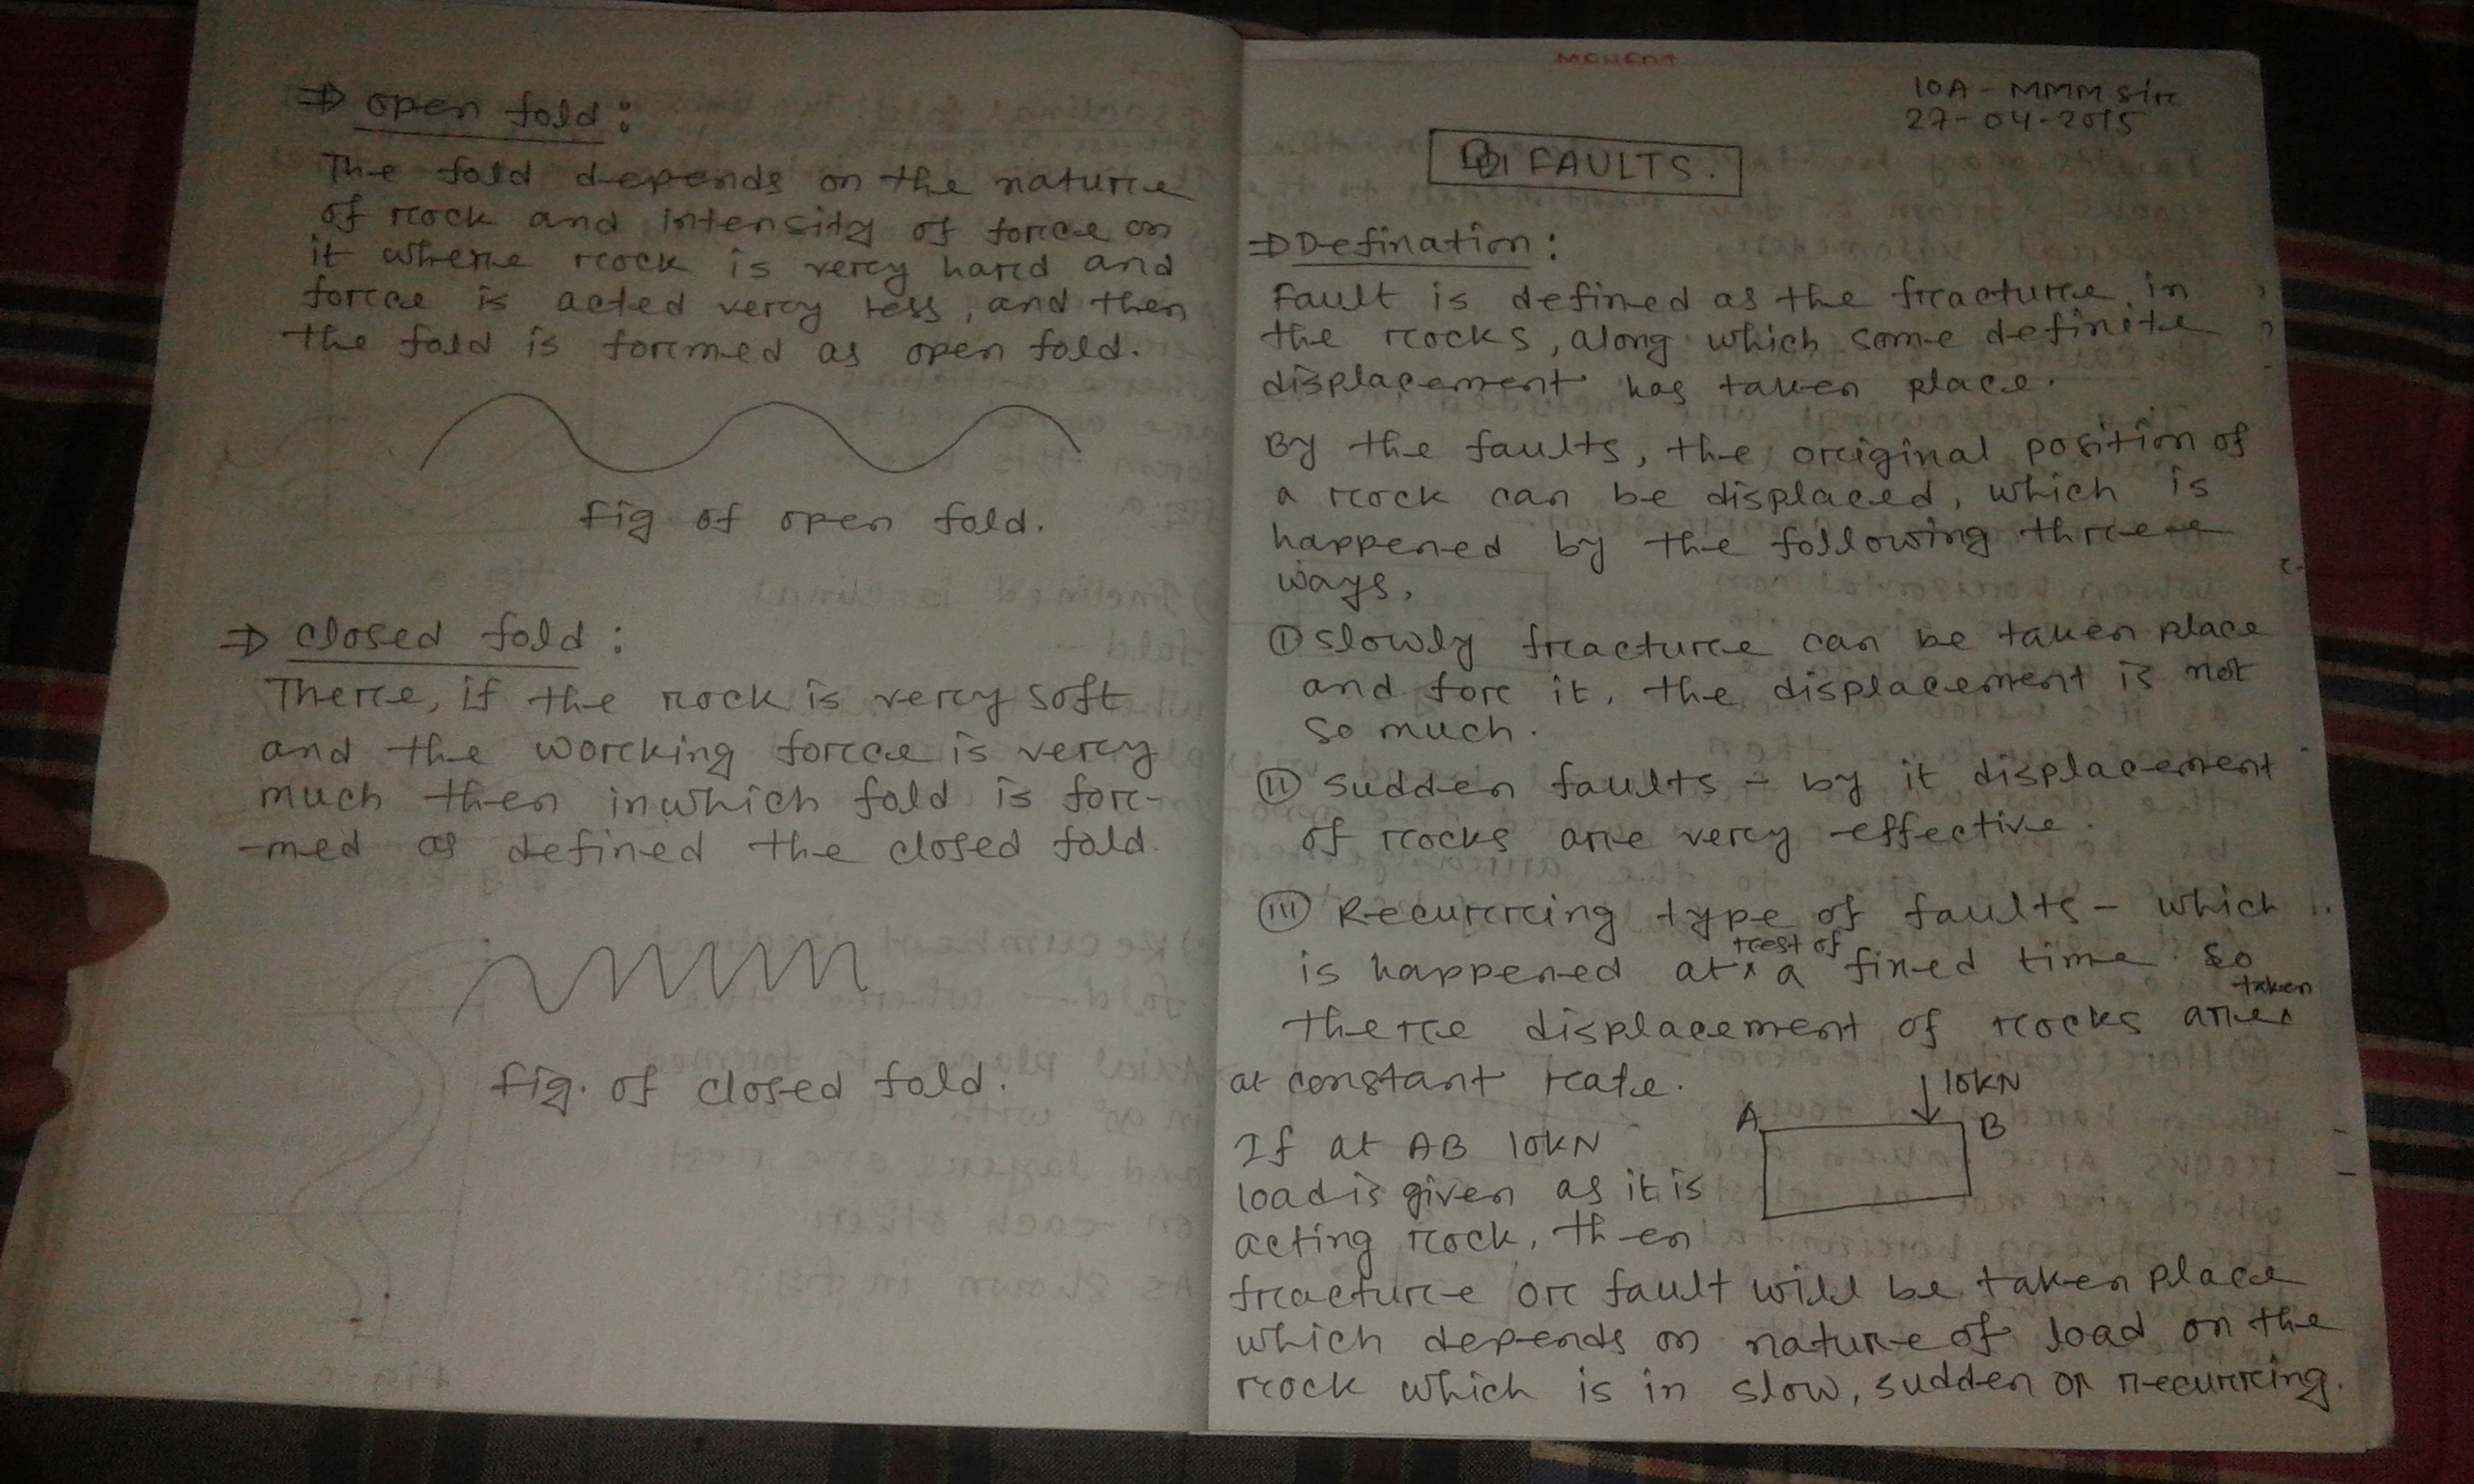 ⇒ open fold:
The fold depends on the nature
of rock and intensity of force on
it where rock is very hard and
force is acted very less, and then
the fold is formed as open fold.
fig of open fold.
⇒ closed fold:
There, if the rock is very soft
and the working force is very
much then inwhich fold is for-
-med as defined the closed fold.
fig. of closed fold.
10A - MMM sir
27-04-2015
FAULTS.
⇒ Defination:
Fault is defined as the fracture in
the rocks, along which some definite
displacement has taken place.
By the faults, the original position of
a rock can be displaced, which is
happened by the following three
ways,
(I) slowly fracture can be taken place
and for it, the displacement is not
so much.
(II) sudden faults - by it displacement
of rocks are very effective.
(III) Recurring type of faults - which
is happened at rest of a fixed time. So
there displacement of rocks are taken
at constant rate.
10KN
A B
If at AB 10KN
load is given as it is
acting rock, then
fracture or fault will be taken place
which depends on nature of load on the
rock which is in slow, sudden or recurring.